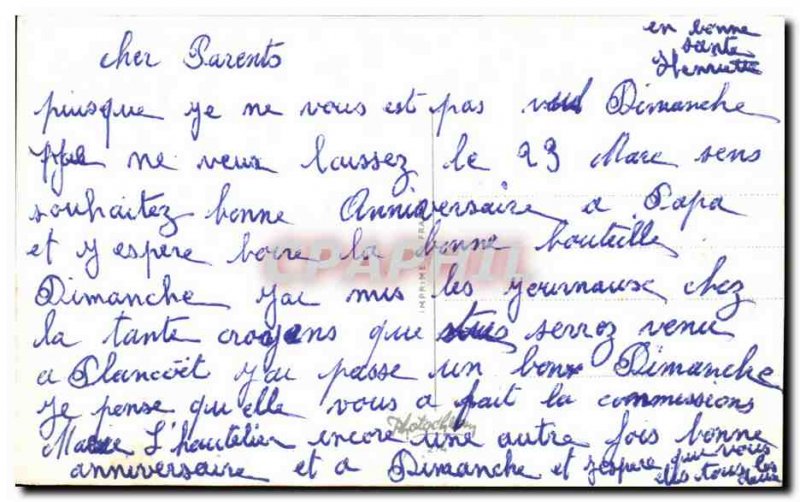 en bonne
sante
Henriette
cher Parents
puisque je ne vous est pas vue Dimanche
je ne veux laissez le 23 Mars sens
souhaitez bonne Anniversaire a Papa
et j espere boire la bonne bouteille
Dimanche j'ai mis les journaux chez
la tante croyens que vous serrez venu
a Plancoët j'ai passe un bon Dimanche
je pense qu'elle vous a fait la commissions
L'hautelier encore une autre fois bonne
anniversaire et a Dimanche et j'espere que vous
êtes tous les deux
CPAPHIL
IMPRIMÉ
Photochrom